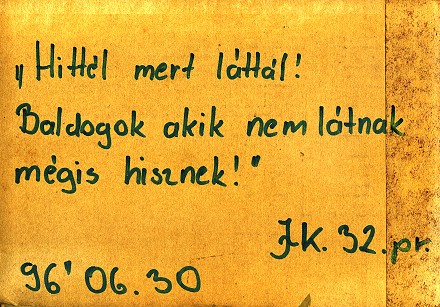 „Hittél mert láttál!
Baldogok akik nem látnak
mégis hisznek!"
JK. 32. pr.
96' 06. 30